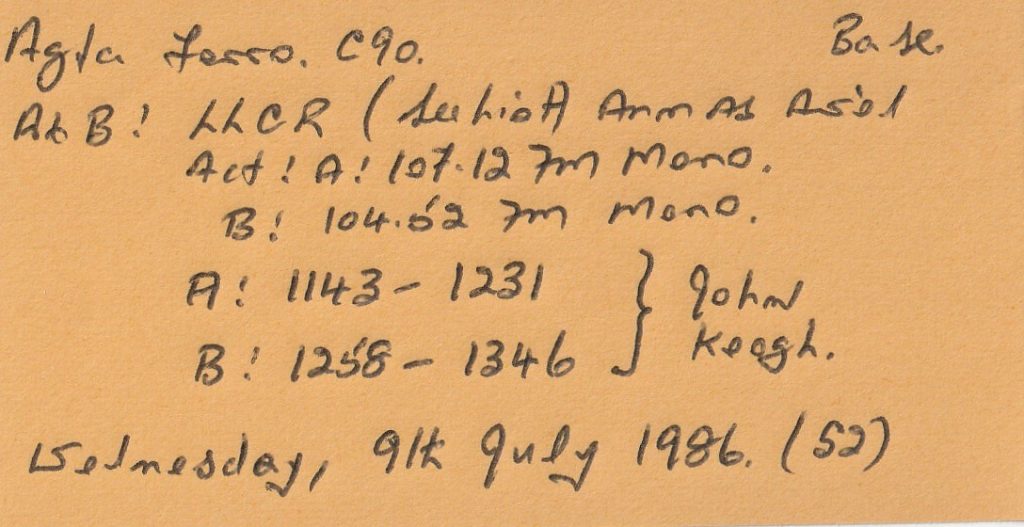 Agfa Ferro. C90. Base.
A & B! LLCR ( Anmas
Act! A! 107.12 7m Mono.
B! 104.52 7m Mono.
A! 1143 - 1231 } John
B! 1258 - 1346 } Keogh.
Wednesday, 9th July 1986. (52)